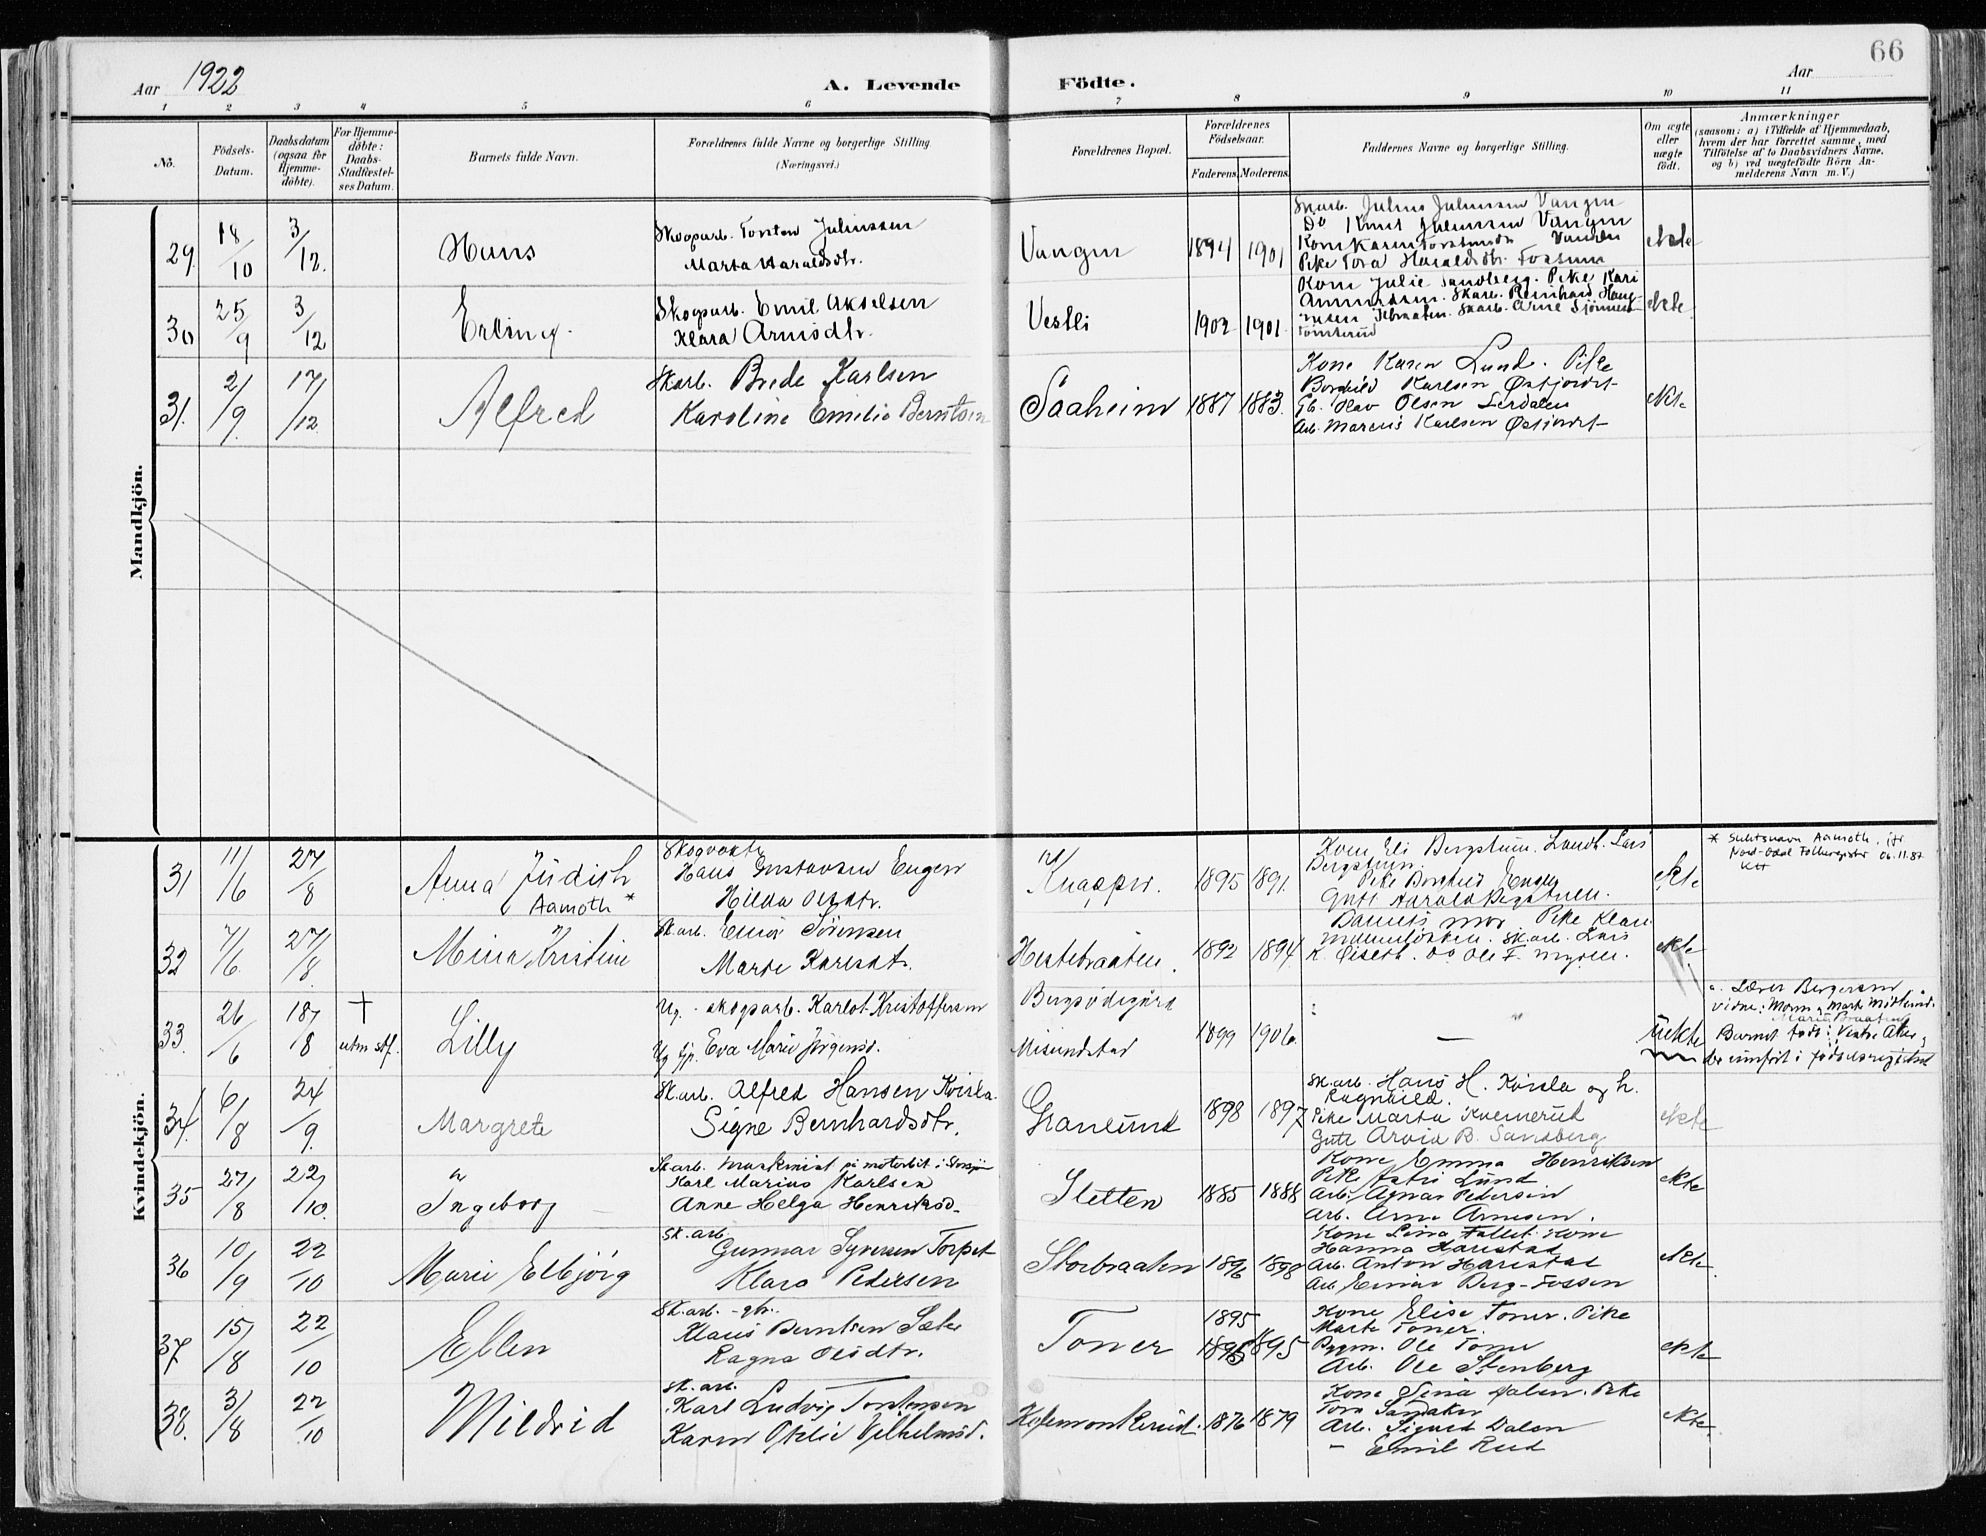 66
Aar 1922
A. Levende Födte.
Aar
1 2 3 4 5 6 7 8 9 10 11
No.
Födsels-
Datum.
Daabsdatum
(ogsaa for
Hjemme-
döbte).
For Hjemme-
döbte:
Daabs-
Stadfæstel-
ses Datum.
Barnets fulde Navn.
Forældrenes fulde Navne og borgerlige Stilling
(Næringsvei.)
Forældrenes Bopæl.
Forældrenes
Födselsaar.
Faderens. Moderens.
Faddernes Navne og borgerlige Stilling.
Om ægte
eller
uægte
födt.
Anmærkninger
(saasom: a) i Tilfælde af Hjemmedaab,
hvem der har forrettet samme, med
Tilföielse af to Daabsvidners Navne,
og b) ved uægtefödte Börn An-
melderens Navn m. V.)
Mandkjön.
29. 18/10 3/12 Hans
Skogarb. Torsten Juliussen
Marta Haraldsdtr.
Vangen 1894 1901
Skarb. Julius Juliussen Vangen
Do Knut Juliussen Vangen
Kone Karen
Pike Tora Haraldsdtr. Fossum
ekte
30 25/9 3/12 Erling.
Skogarb. Emil Akselsen
Klara Arnisdtr.
Vestli 1902 1901
Kone Julie Sandberg. Pike Kari
Skarb. Reinhard
Skarb. Arne
ekte
31. 2/9 17/12 Alfred
Skarb. Brede Karlsen
Karoline Emilie Berntsen
Saaheim 1887 1883.
Kone Karen Lund. Pike
Borghild Karlsen Østfjordet
Gb. Olav Olsen Lerdalen
Arb. Marcus Karlsen Østfjordet
ekte
Kvindekjön.
31 11/6 27/8 Anna Judith
Aamoth *
Skogvokter
Hans Gustavsen Engen
Hilda Olsdtr.
Knapper. 1895 1891.
Kone Eli Bergstrøm. Landh. Lars
Bergstrøm.
Pike Borghild Engen
Gutt Harald
ekte
* Slektsnavn Aamoth, jfr
Nord-Odal Folkeregister 06.11.87
32 7/6 27/8 Mina Kristine
Sk.arb. Einar Sörensen
Marte Karlsdt.
Hestebraaten. 1892 1894.
Barnets mor Pike Klara
Sk.arb. Lars
K. Øiseth. Do Ole F. Myren.
ekte
33. 26/6 18/8 † utm stf. Lilly
Ug. skogarb. Karlot Kristoffersen
Ug tjp. Eva Marie Jörgensd.
Misundstad 1899 1906.
—
Uekte
Lærer Bergersen
vidne:
Barnet født i Vestre Aker,
der innført i fødselsregistret
34 6/8 24/9 Margrete
Sk.arb. Alfred Hansen Kvisla
Signe Bernhardsdtr.
Granlund 1898 1897
Sk.arb. Hans H. Kvisla og h.
Ragnhild.
Pike Marta Kvernerud
Gutt Arvid B. Sandberg
ekte
35 27/8 22/10 Ingeborg
Sk.arb. maskinist på motorbåt i Storsjøen
Karl Marius Karlsen
Anne Helga Henriksd.
Sletten 1885 1888
Kone Emma Henriksen
Pike Astri Lund
Arb. Agnar Pedersen
Arb. Arne Arnesen.
ekte
36 10/9 22/10 Marie Elbjörg
Sk.arb.
Gunnar Syversen Torpet
Klara Pedersen
Storbraaten 1896 1898
Kone Lina Fallet. Kone
Hanna Harestad
Arb. Anton Harestad
Arb. Einar Berg-Fossen
ekte.
37 15/8 22/10 Ellen
Sk.arb. - gbr.
Klaus Berntsen Sæter
Ragna Olsdtr.
Toner 1895 1895
Kone Elise Toner. Pike
Marte Toner.
Ole Toner
Arb. Ole Stenberg
ekte
38. 3/8 22/10 Mildrid
Sk.arb.
Karl Ludvig Torstensen
Karen Otelie Vilhelmsd.
Kolemonkerud. 1876 1879
Kone Lena Dalen. Pike
Tora Sandaker
Arb. Sigurd Dalen
— Emil Rud
ekte